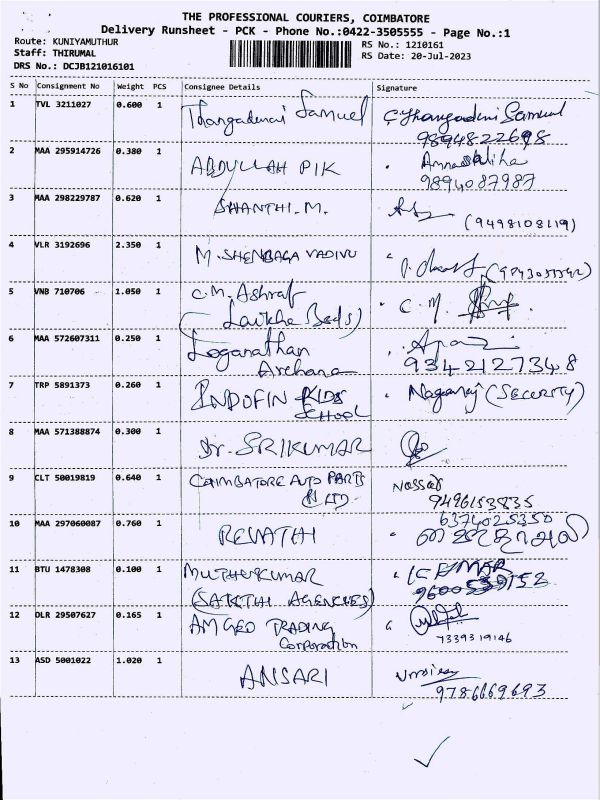 THE PROFESSIONAL COURIERS, COIMBATORE
Delivery Runsheet - PCK - Phone No.:0422-3505555 - Page No.:1
Route: KUNIYAMUTHUR
Staff: THIRUMAL
DRS No.: DCJB121016101
RS No.: 1210161
RS Date: 20-Jul-2023
S No Consignment No Weight PCS Consignee Details Signature
1 TVL 3211027 0.600 1 Thangadurai Samuel
9894822698
2 MAA 295914726 0.380 1 ABDULLAH PIK
9894087987
3 MAA 298229787 0.620 1 SHANTHI.M.
(9498108119)
4 VLR 3192696 2.350 1 M.SHENBAGA VADIVU
5 VNB 710706 1.050 1 C.M.Ashraf C.M.
(Laikha Beds)
6 MAA 572607311 0.250 1 Loganathan
Archana 9342127348
7 TRP 5891373 0.260 1 INDOFIN KIDS Nagaraj (SECURITY)
SCHOOL
8 MAA 571388874 0.300 1 Dr. SRIKUMAR
9 CLT 50019819 0.640 1 COIMBATORE AUTO PARTS Nassar
P LTD 9496153835
10 MAA 297060087 0.760 1 REVATHI 6374025350
11 BTU 1478308 0.100 1 MUTHUKUMAR KUMAR
(SAKTHI AGENCIES)
12 DLR 29507627 0.165 1 AM GEO TRADING
Corporation 7339319146
13 ASD 5001022 1.020 1 ANSARI
9786669693